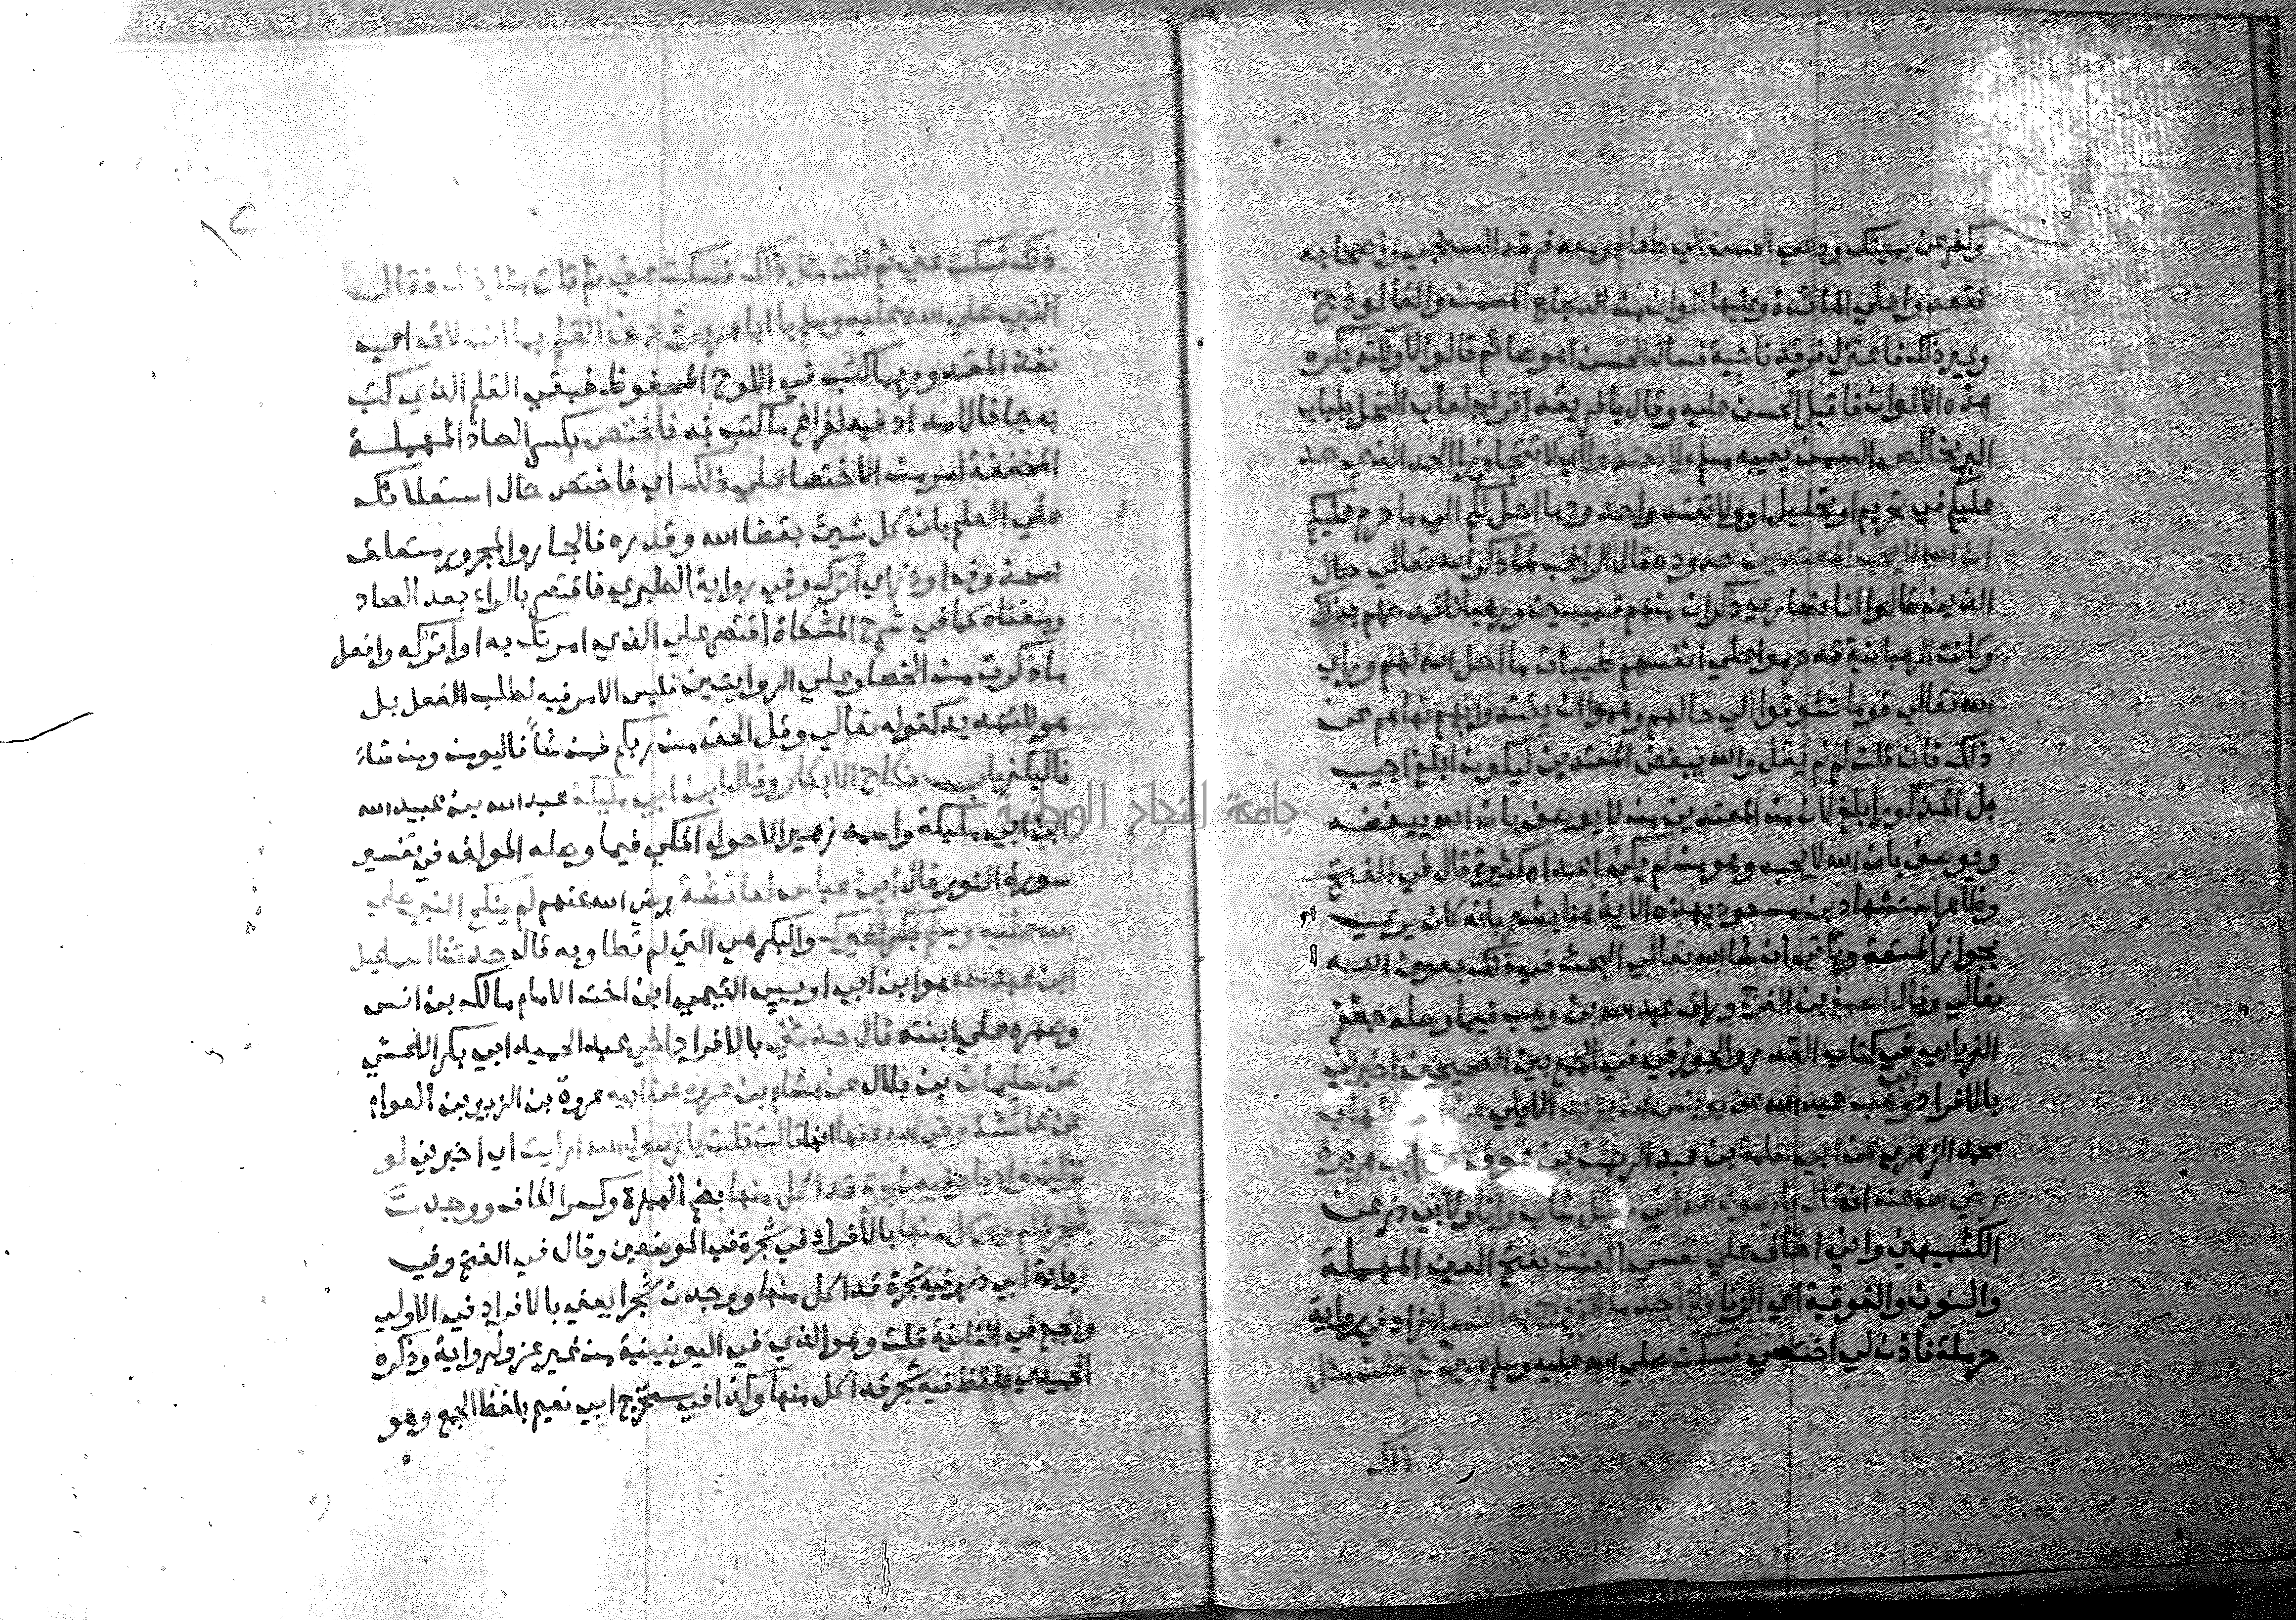 وكفر عن يمينك ودعي الحسن الي طعام ومعه فرقد السبخي واصحابه
فقعدوا علي المائدة وعليها الوان من الدجاج المسمن والفالوذج
وغير ذلك فاعتزل فرقد ناحية فسال الحسن اهو صائم قالوا لا ولكنه يكره
هذه الالوان فاقبل الحسن عليه وقال يا فريقد اترى لعاب النحل بلباب
البر بخالص السمن يعيبه مسلم ولا تعتدوا اي لا تتجاوزا الحد الذي حد
عليكم في تحريم او تحليل او ولا تعتدوا حدود ما احل لكم الي ما حرم عليكم
ان الله لا يحب المعتدين حدوده قال الراغب لما ذكر الله تعالي حال
الذين قالوا انا نصاري ذكر ان منهم قسيسين ورهبانا فمدحهم بذلك
وكانت الرهبانية قد حرموا علي انفسهم طيبات ما احل الله لهم وراي
الله تعالي قوما تشوقوا الي حالهم وهموا ان يقتدوا بهم نهاهم عن
ذلك فان قلت لم لم يقل والله يبغض المعتدين ليكون ابلغ اجيب
بل المذكور ابلغ لان من المعتدين من لا يوصف بان الله يبغضه
ويوصف بان الله لا يحبه وهو من لم يكن اعتداه كثيرة قال في الفتح
وظاهر استشهاد بن مسعود بهذه الاية هنا يشعر بانه كان يري
بجواز المتعة وياتي ان شا الله تعالي البحث في ذلك بعون الله
تعالي وقال اصبغ بن الفرج وراق عبد الله بن وهب فيما وصله جعفر
الفريابي في كتاب القدر والجوزقي في الجمع بين الصحيحين اخبرني
بالافراد ابن وهب عبد الله عن يونس بن يزيد الايلي عن شهاب
محمد الزهري عن ابي سلمة بن عبد الرحمن بن عوف عن ابي هريرة
رضي الله عنه انه قال يا رسول الله اني رجل شاب وانا ولابي ذر عن
الكشميهني واني اخاف علي نفسي العنت بفتح العين المهملة
والنون والفوقية اي الزنا ولا اجد ما اتزوج به النسا زاد في رواية
حرملة فاذن لي اختصي فسكت صلي الله عليه وسلم عني ثم قلت مثل
ذلك
ذلك فسكت عني ثم قلت مثل ذلك فسكت عني ثم قلت مثل ذلك فقال
النبي صلي الله عليه وسلم يا ابا هريرة جف القلم بما انت لاق اي
نفذ المقدور بما كتب في اللوح المحفوظ فبقي القلم الذي كتب
به جافا لا مداد فيه لفراغ ما كتب به فاختص بكسر الصاد المهملة
المخففة امر من الاختصا علي ذلك اي فاختص حال استعلائك
علي العلم بان كل شيئ بقضا الله وقدره فالجار والمجرور متعلق
بمحذوف او ذر اي اترك وفي رواية الطبري فاقتصر بالراء بعد الصاد
ومعناه كما في شرح المشكاة اقتصر علي الذي امرتك به او اتركه وافعل
ما ذكرت من الخصا وعلي الروايتين فليس الامر فيه لطلب الفعل بل
هو للتهديد كقوله تعالي وقل الحق من ربكم فمن شاً فاليومن ومن شاء
فاليكفر باب نكاح الابكار وقال ابن ابي مليكة عبد الله بن عبيد الله
ابن ابي مليكة واسمه زهير الاحول المكي فيما وصله المولف في تفسير
سورة النور قال ابن عباس لعائشة رضي الله عنهم لم ينكح النبي صلي
الله عليه وسلم بكرا غيرك والبكر هي التي لم توطا وبه قال حدثنا اسماعيل
ابن عبد الله هو ابن ابي اويس التيمي ابن اخت الامام مالك بن انس
وصهره علي ابنته قال حدثني بالافراد اخي عبد الحميد ابي بكر الاعشي
عن سليمان بن بلال عن هشام بن عروة عن ابيه عروة بن الزبير بن العوام
عن عائشة رضي الله عنها انها قالت قلت يا رسول الله ارايت اي اخبرني لو
نزلت واديا وفيه شجرة قد اكل منها بضم الهمزة وكسر الكاف ووجدت
شجرة لم يوكل منها بالافراد في شجرة في الموضعين وقال في الفتح وفي
رواية ابي ذر وفيه شجرة قد اكل منها ووجدت شجرا يعني بالافراد في الاولي
والجمع في الثانية قلت وهو الذي في اليونينية من غير عزو لرواية وذكره
الحميدي بلفظ فيه شجر قد اكل منها وكذا في مستخرج ابي نعيم بلفظ الجمع وهو
جامعة النجاح الوطنية